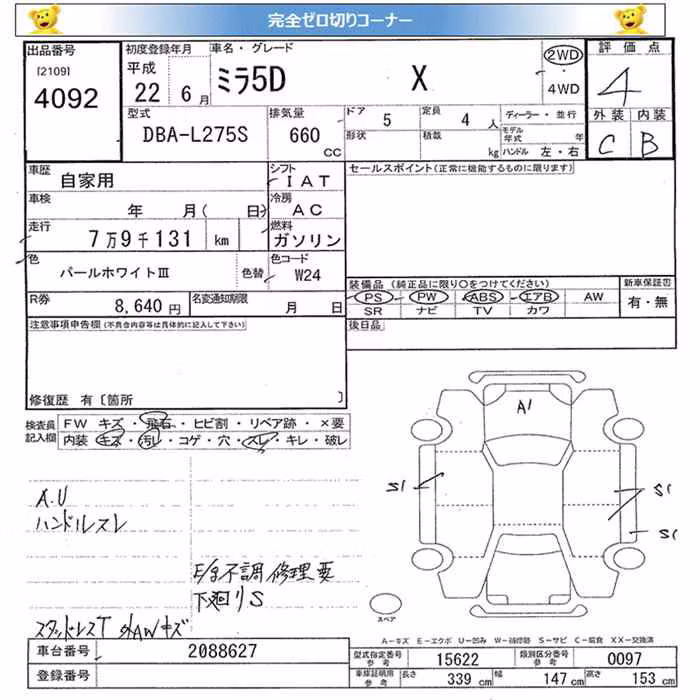 完全ゼロ切りコーナー
出品番号 初度登録年月 車名・グレード 評価点
[2109] 平成 ミラ5D X 2WD
4092 22 6月 4WD 4
型式 排気量 ドア 5 定員 4人 ディーラー・並行 外装 内装
DBA-L275S 660 CC 形状 積載 kg モデル年式 年 C B
ハンドル 左・右
車歴 自家用 シフト IAT セールスポイント(正常に機能するものに限ります)
車検 年 月( 日) 冷房 AC
走行 7万9千131 km 燃料 ガソリン
色 パールホワイトⅢ 色替 色コード W24
装備品(純正品に限り○をつけてください) 新車保証書
R券 8,640円 名変通知期限 月 日 PS PW ABS エアB AW 有・無
SR ナビ TV カワ
注意事項申告欄(不具合内容等は具体的に記入して下さい) 後日品
修復歴 有〔箇所 〕
検査員記入欄 FW キズ・飛石・ヒビ割・リペア跡・×要
内装 キズ・汚レ・コゲ・穴・スレ・キレ・破レ
A1
S1 S1
S1
A.U
ハンドルスレ
E/g不調 修理要
下廻りS
スタッドレスT 外AWキズ
スペア
A-キズ E-エクボ U-凹み W-補修跡 S-サビ C-腐食 XX-交換済
車台番号 2088627 型式指定番号 参考 15622 類別区分番号 参考 0097
登録番号 車庫証明用 参考 長さ 339cm 幅 147cm 高さ 153cm